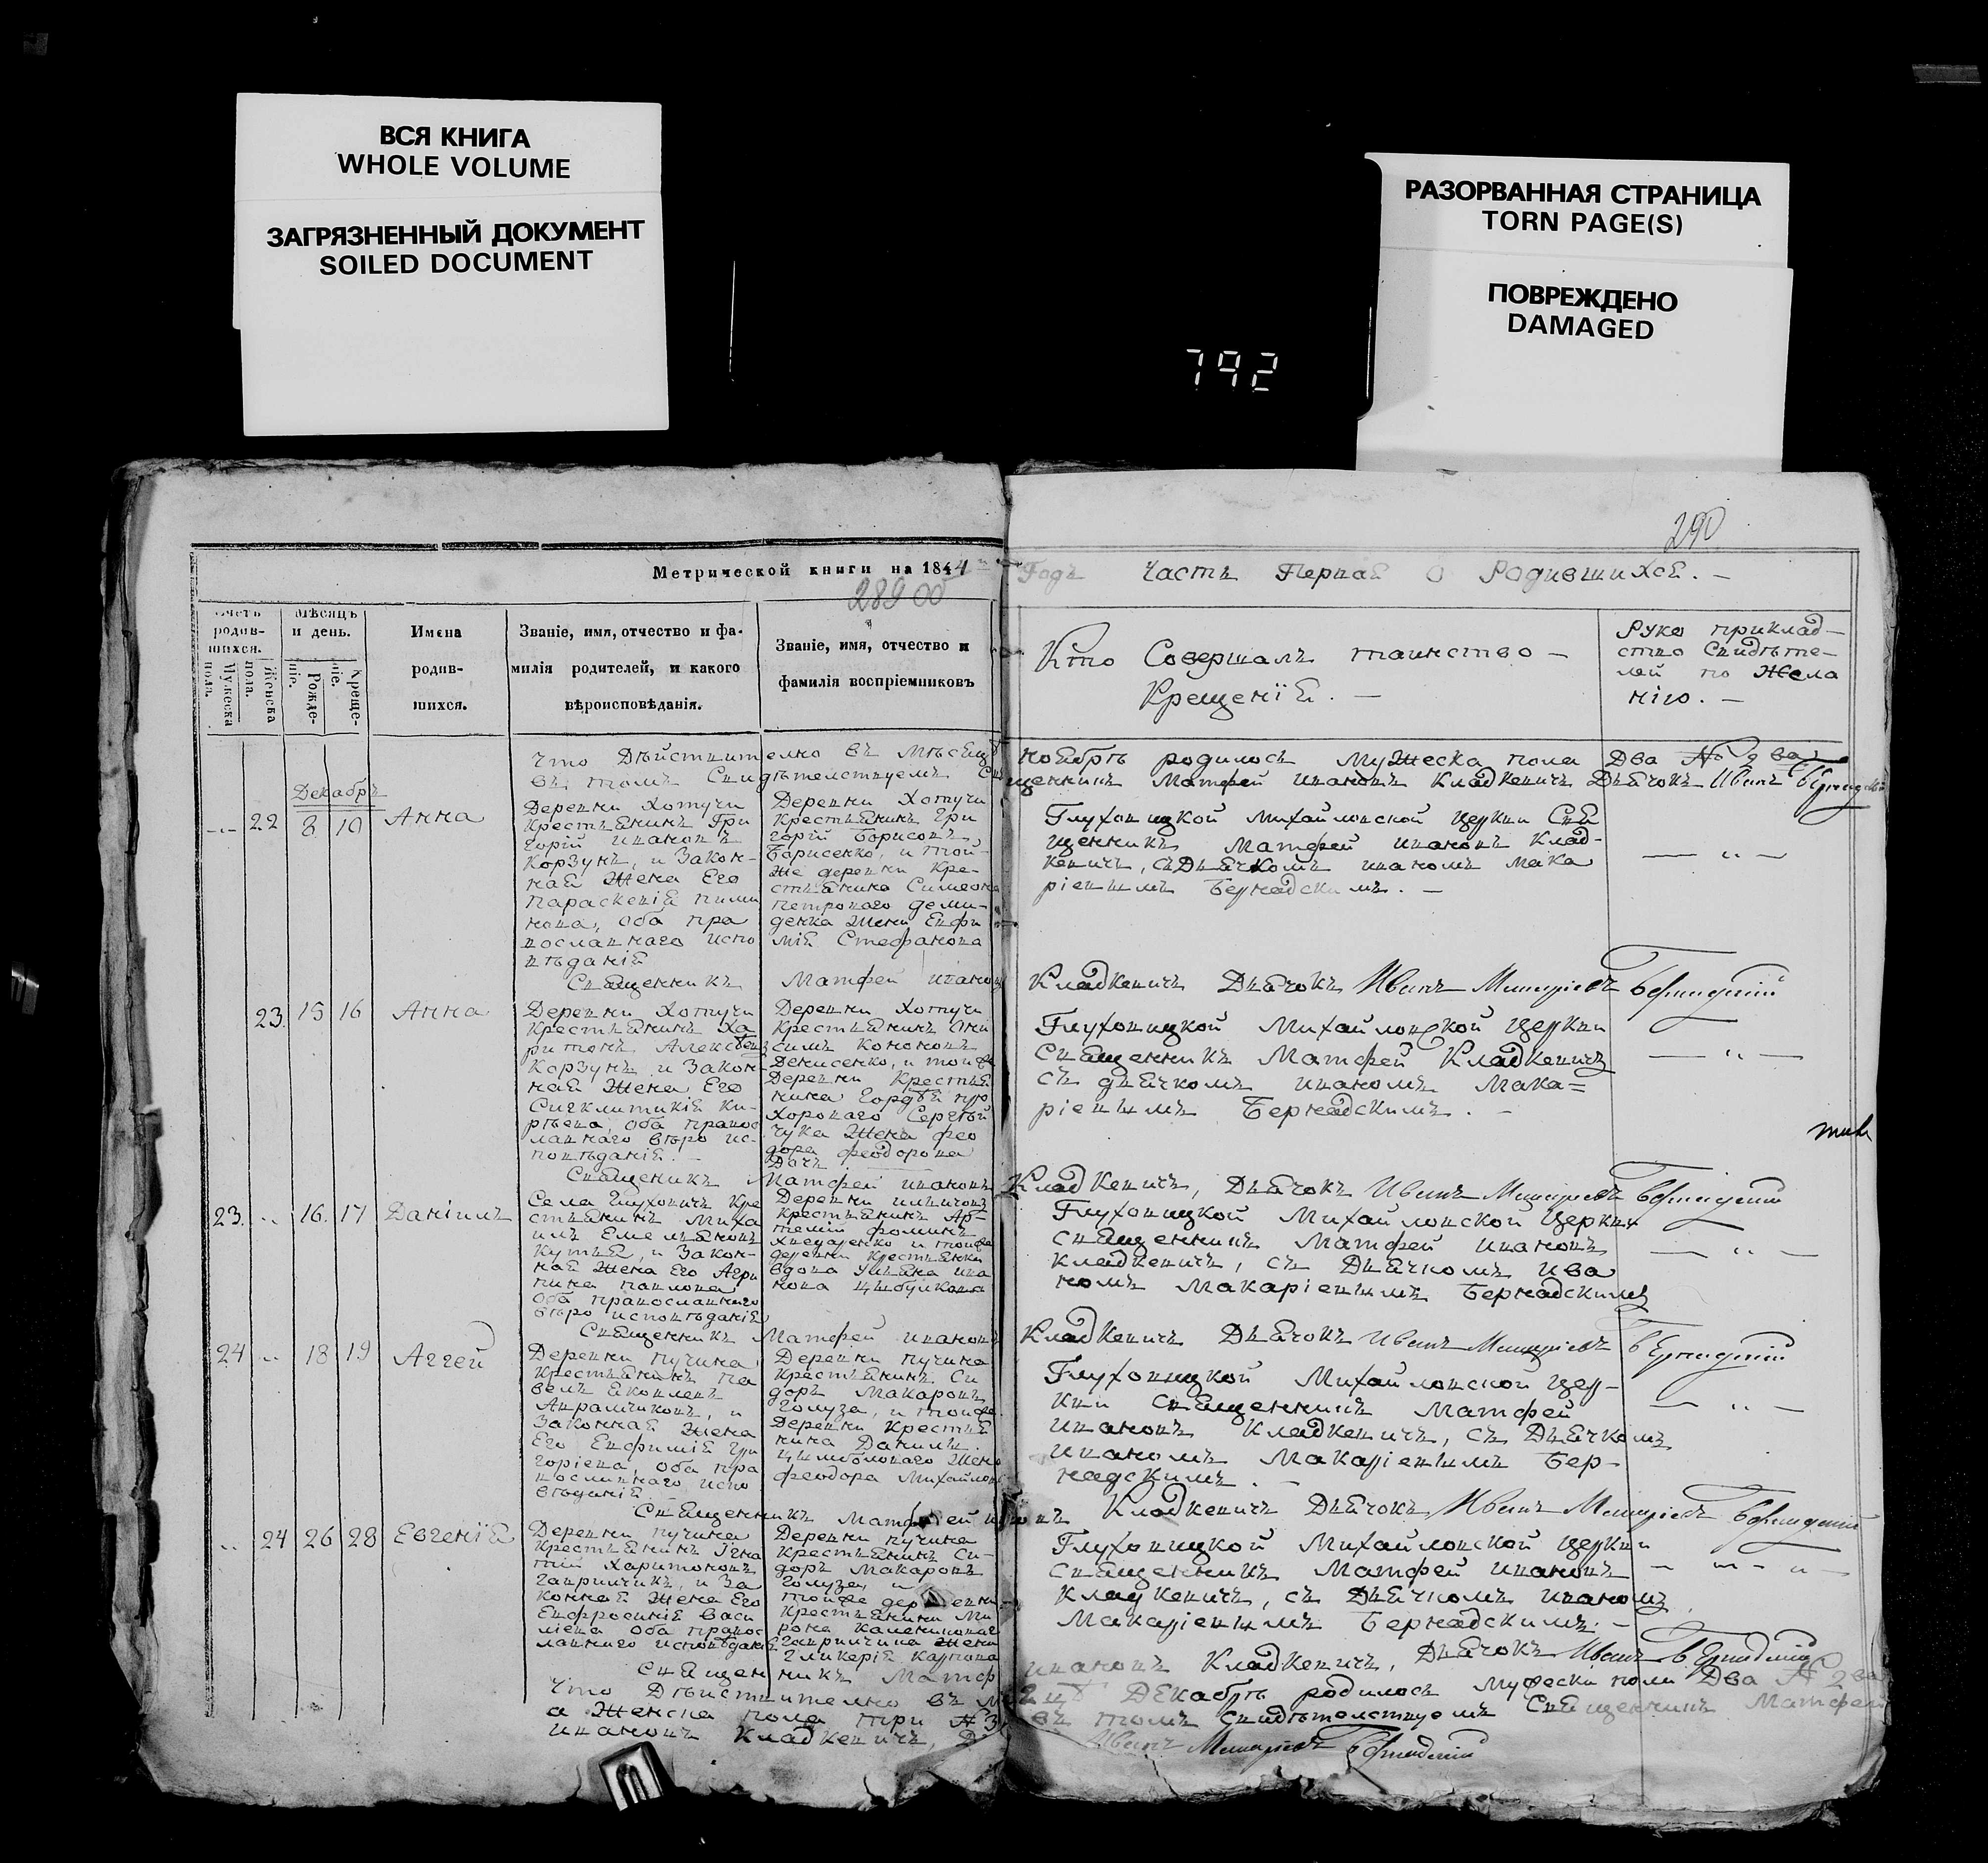 ВСЯ КНИГА
WHOLE VOLUME
ЗАГРЯЗНЕННЫЙ ДОКУМЕНТ
SOILED DOCUMENT
РАЗОРВАННАЯ СТРАНИЦА
TORN PAGE(S)
ПОВРЕЖДЕНО
DAMAGED
792
290
Метрической книги на 1844 Годъ Часть Первая О Родившихся. —
289 об
Счетъ родив-шихся.
Мужеска пола.
Женска пола.
Мѣсяцъ и день.
Рожде-ніе.
Креще-ніе.
Имена
родив-
шихся.
Званіе, имя, отчество и фа-
милія родителей, и какого
вѣроисповѣданія.
Званіе, имя, отчество и
фамилія воспріемниковъ
Кто Совершалъ таинство —
Крещенія. —
Руко приклад—
ство Свидѣте—
лей по Жела
нію. —
Что Дѣйствительно въ Мѣсяцѣ Ноябрѣ родилось Мужеска пола Два № 2
въ томъ Свидѣтелствуемъ Священникъ Матфей Ивановъ Кладкевичъ Дьячокъ Иванъ Бернадскій
Декабрь
22 8 10 Анна
Деревни Хотучи
Крестьянинъ Гри
горій Ивановъ
Корзунъ, и Закон-
ная Жена Его
Параскевія
оба пра
вославнаго испо
вѣданія
Деревни Хотучи
Крестьянинъ Гри
горій Борисовъ
Борисенко, и той-
же деревни Кре-
стьянина Симеона
Петроваго Деми-
денка Жена Евфи
мія Стефанова
Глуховицкой Михайловской Церкви Свя
щенникъ Матфей Ивановъ Клад-
кевичъ, съ Дьячкомъ Иваномъ Мака
ріевымъ Бернадскимъ. —
Священникъ Матфей Ивановъ Кладкевичъ Дьячокъ Иванъ Макаріевъ Бернадскій
23. 15 16 Анна
Деревни Хотучи
Крестьянинъ Ха
ритонъ Алексѣевъ
Корзунъ и Закон-
ная Жена Его
Сигклитикія Ки-
рѣева, оба правос
лавнаго вѣро ис-
повѣданія. —
Деревни Хотучи
Крестьянинъ Они
симъ Кононовъ
Денисенко, и тойже
Деревни Крестья
нина Гордѣя Про
хороваго Сергѣй
чука Жена Фео
дора Феодорова
Дочь
Глуховицкой Михайловской Церкви
Священникъ Матфей Кладкевичъ
съ дьячкомъ Иваномъ Мака=
ріевымъ Бернадскимъ. —
Священикъ Матфей Ивановъ Кладкевичъ, Дьячокъ Иванъ Макаріевъ Бернадскій
23. 16. 17 Даніилъ
Села Глуховичъ Кре
стьянинъ Миха
илъ Емельяновъ
Кутья, и Закон-
ная Жена Его Агри
пина Павлова
Оба православнаго
вѣро исповѣданія
Крестьянинъ Ар-
темій Фоминъ
и тойже
деревни Крестьянка
вдова Ульяна Ива
нова
Глуховицкой Михайловской Церкви
Священникъ Матфей Ивановъ
Кладкевичъ, съ Дьячкомъ Ива
номъ Макаріевымъ Бернадскимъ
Священникъ Матфей Ивановъ Кладкевичъ Дьячокъ Иванъ Макаріевъ Бернадскій
24 18 19 Аггей
Деревни Пучина
Крестьянинъ Па
велъ Яковлевъ
и
Законная Жена
Его Евфимія Гри
горіева, оба пра
вославнаго испо
вѣданія
Деревни Пучина
Крестьянинъ Си
доръ Макаровъ
Голуза, и тойже
Деревни Крестья
нина Данила
Жена
Феодора Михайлова
Глуховицкой Михайловской Цер-
кви Священникъ Матфей
Ивановъ Кладкевичъ, съ Дьячкомъ
Иваномъ Макаріевымъ Бер-
надскимъ.
Священникъ Матфей Ивановъ Кладкевичъ Дьячокъ Иванъ Макаріевъ Бернадскій
24 26 28 Евгенія
Деревни Пучина
Крестьянинъ Игна
тій Харитоновъ
Гаврильчикъ, и За
конная Жена Его
Евфросинія Васи
ліева Оба правос
лавнаго исповѣданія
Деревни Пучина
Крестьянинъ Си-
доръ Макаровъ
Голуза, и
тойже деревни
Крестьянина Ми
рона
Жена
Гликерія Карпова
Глуховицкой Михайловской Церкви
Священникъ Матфей Ивановъ
Кладкевичъ, съ Дьячкомъ Иваномъ
Макаріевымъ Бернадскимъ. —
Священникъ Матфей Ивановъ Кладкевичъ, Дьячокъ Иванъ Бернадскій
Что Дѣйствително въ Мѣсяцѣ Декабрѣ родилось мужеска пола Два № 2
а Женска пола три № 3 въ томъ Свидѣтелствуемъ Священникъ Матфей
Ивановъ Кладкевичъ, Иванъ Макаріевъ Бернадскій